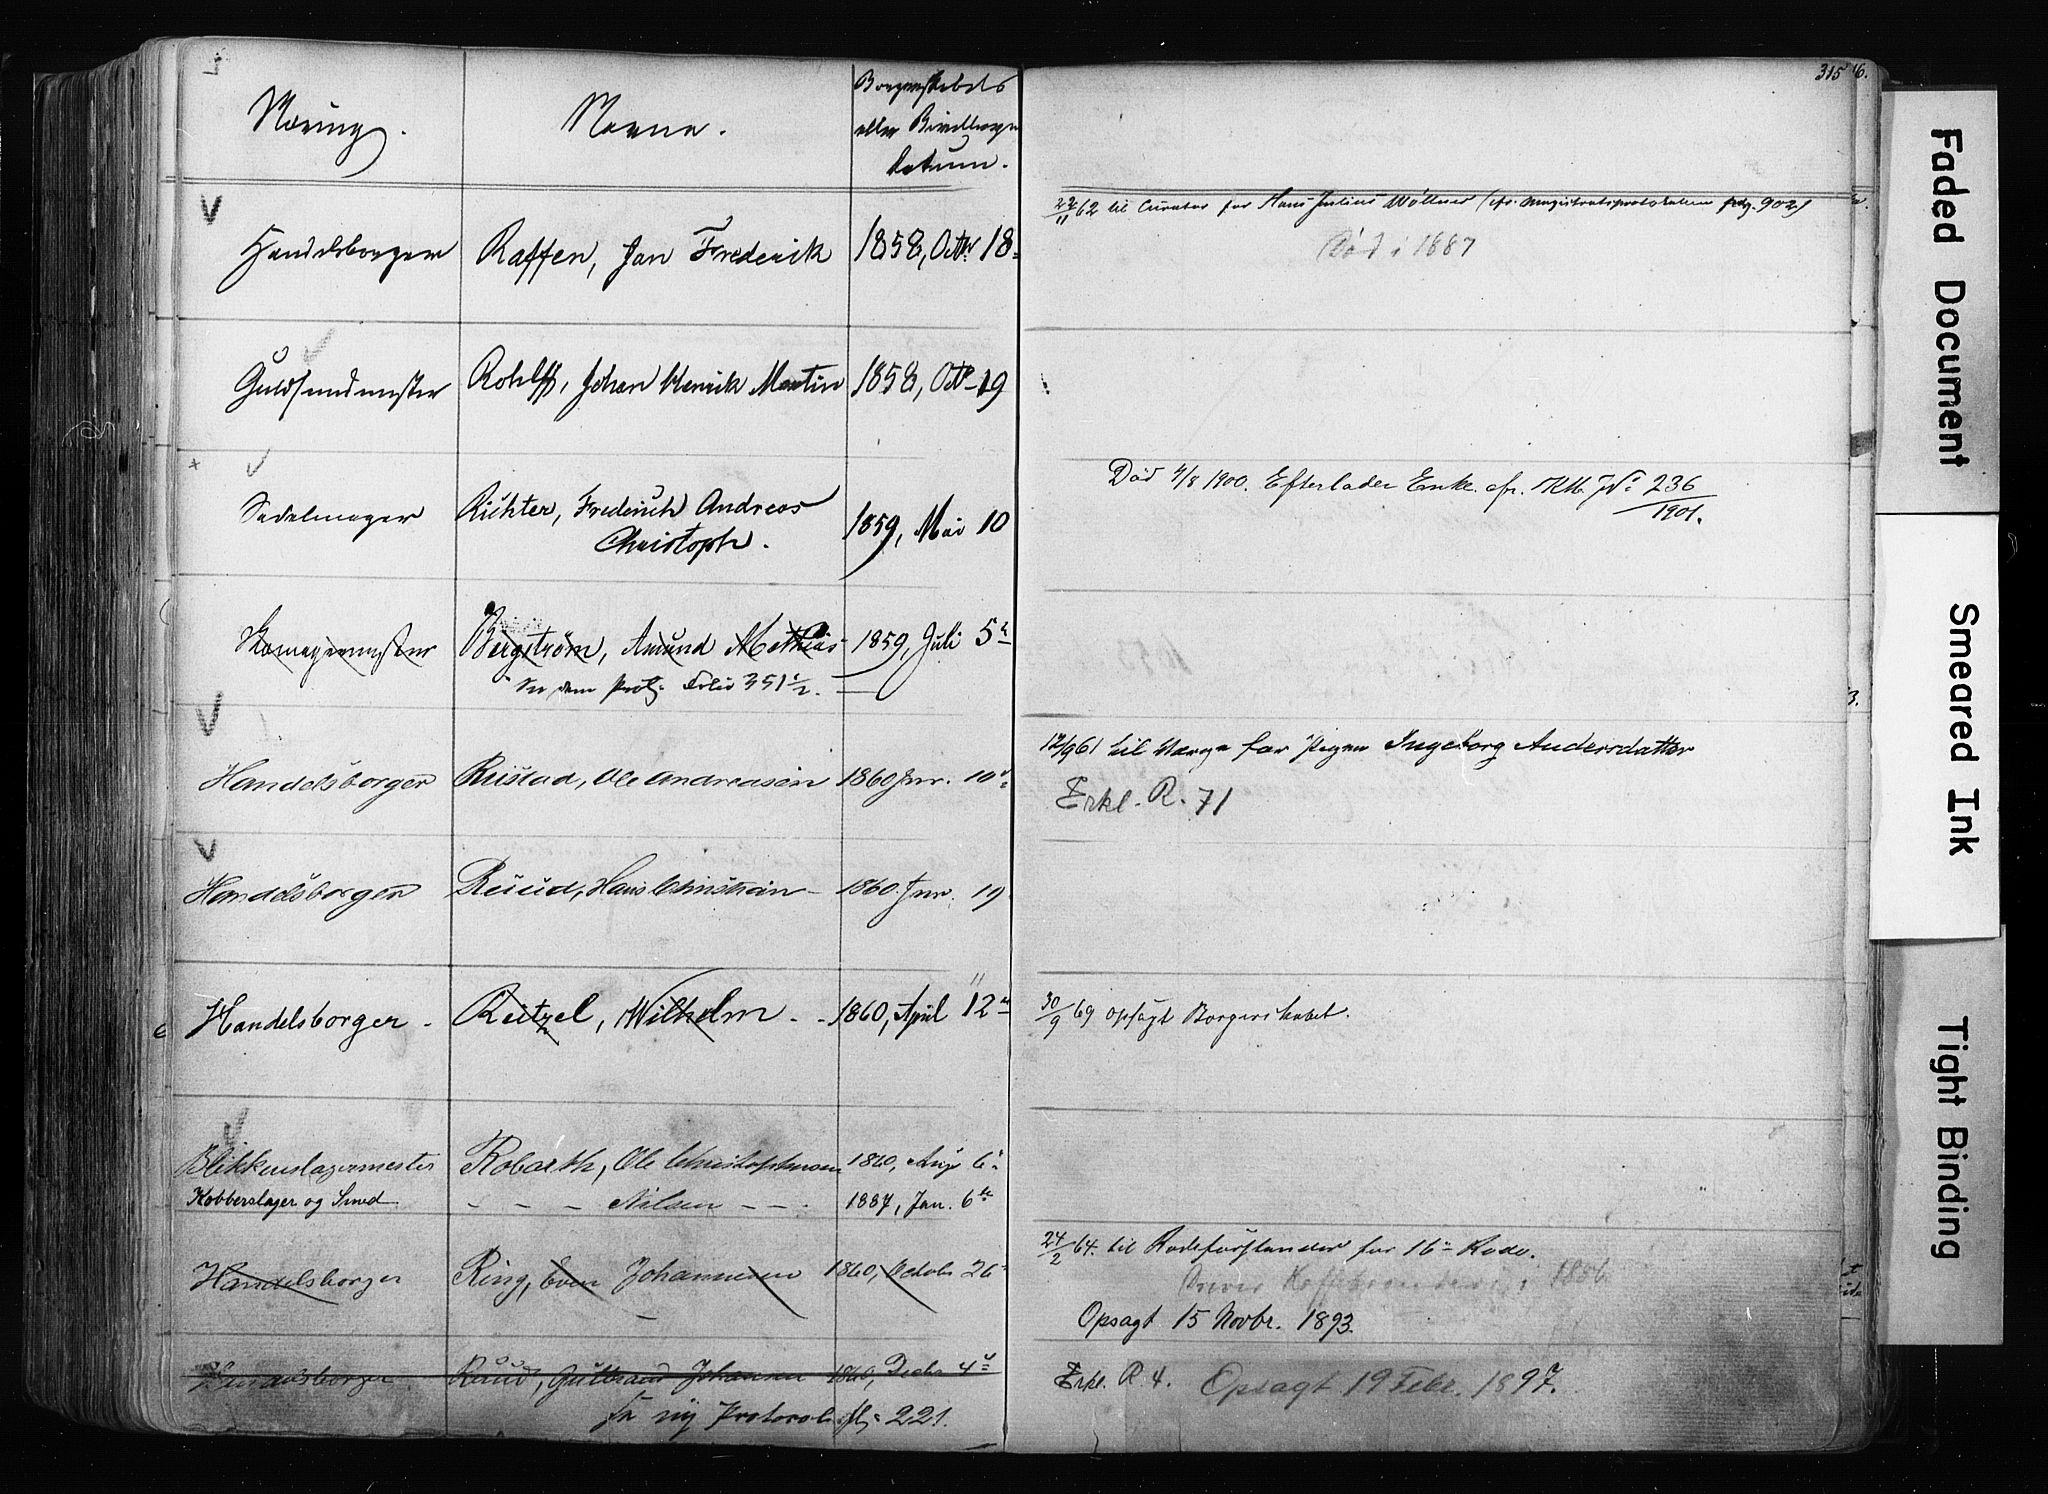 315
6.
Næring.
Navne.
Borgerskabets
eller Bevillings
Datum.
Handelsborger
Raffen, Jan Frederik
1858, Octbr 18
22/11 62 til Curator for Hans Julius Wöllner (cfr. Magistratsprotokollen pag. 902)
Død i 1887
Guldsmedmester
Rohlff, Johan Henrik Martin
1858, Octbr 19
Sadelmager
Richter, Frederich Andreas
Christoph.
1859, Mai 10
Død 4/8 1900. Efterlader Enke. cfr. No 236
1901.
Skomagermester
Bergstrøm, Amund Mathias
1859, Juli 5
Se den Prot. Folio 351 1/2.
Handelsborger
Rustad, Ole Andreasen
1860 Jnr. 10
12/9 61 til Værge for Pigen Ingeborg Andersdatter
Erkl. R. 71
Handelsborger
Ruud, Hans Christian
1860. Jnr. 19
Handelsborger
Reitzel, Wilhelm
1860, April 12
30/9 69 opsagt Borgerskabet.
Blikkenslagermester
Robarth, Ole Christophersen
1860, Aug 6
Kobberslager og Smed
- - - Nilsen - - .
1887, Jan. 6te
Handelsborger
Ring, Even Johannesen
1860, Octob 26
24/2 64. til Rodeforstander for 16 Rode.
1886
Opsagt 15 Novbr. 1893.
Handelsborger
Ruud, Gulbrand Johansen
1860, Decbr 4
Se ny Protocol fl: 221.
Erkl. R. 4. Opsagt 19 Febr. 1897.
Faded Document
Smeared Ink
Tight Binding